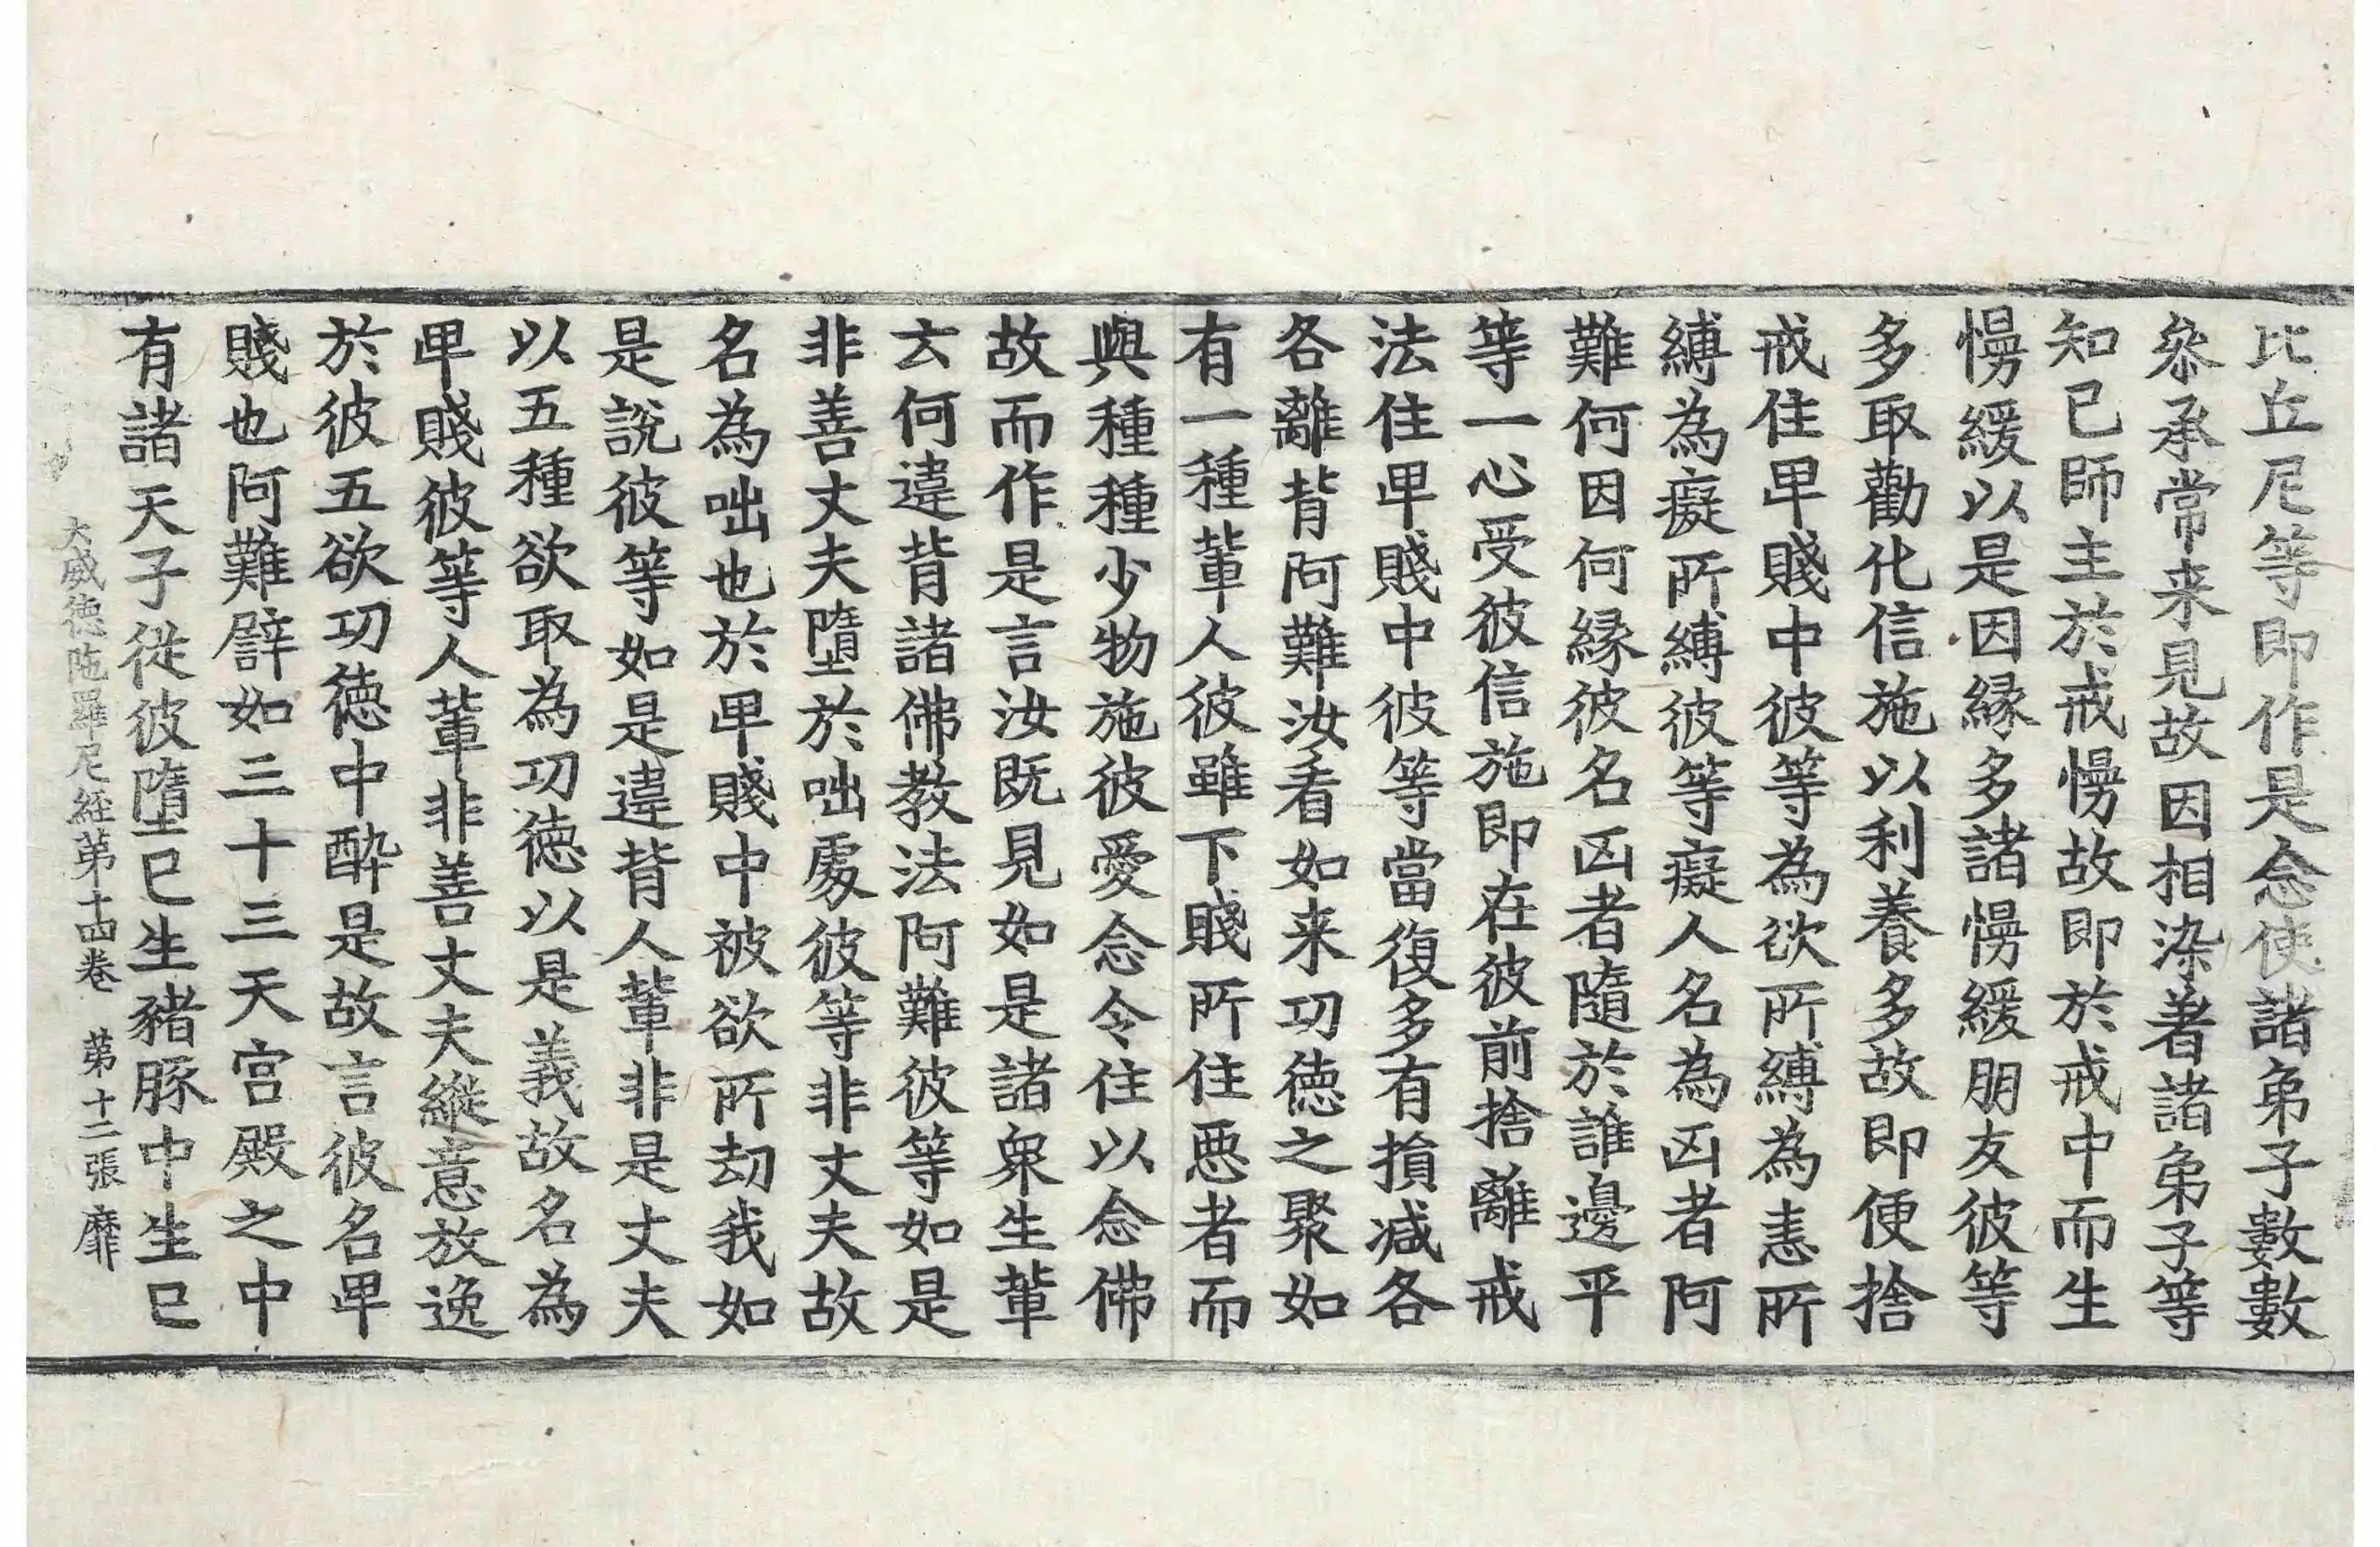 比丘尼等即作是念使諸弟子數數
叅承常来見故因相染著諸弟子等
知已師主於戒慢故即於戒中而生
慢緩以是因緣多諸慢緩朋友彼等
多取勸化信施以利養多故即便捨
戒住卑賤中彼等為欲所縛為恚所
縛為癡所縛彼等癡人名為凶者阿
難何因何緣彼名凶者隨於誰邊平
等一心受彼信施即在彼前捨離戒
法住卑賤中彼等當復多有損減各
各離背阿難汝看如来功德之聚如
有一種輩人彼雖下賤所住惡者而
與種種少物施彼愛念令住以念佛
故而作是言汝既見如是諸衆生輩
云何違背諸佛教法阿難彼等如是
非善丈夫墮於咄處彼等非丈夫故
名為咄也於卑賤中被欲所劫我如
是說彼等如是違背人輩非是丈夫
以五種欲取為功德以是義故名為
卑賤彼等人輩非善丈夫縱意放逸
於彼五欲功德中酔是故言彼名卑
賤也阿難譬如三十三天宫殿之中
有諸天子從彼墮已生豬豚中生已
大威德陁羅尼経第十四卷 第十二張 靡